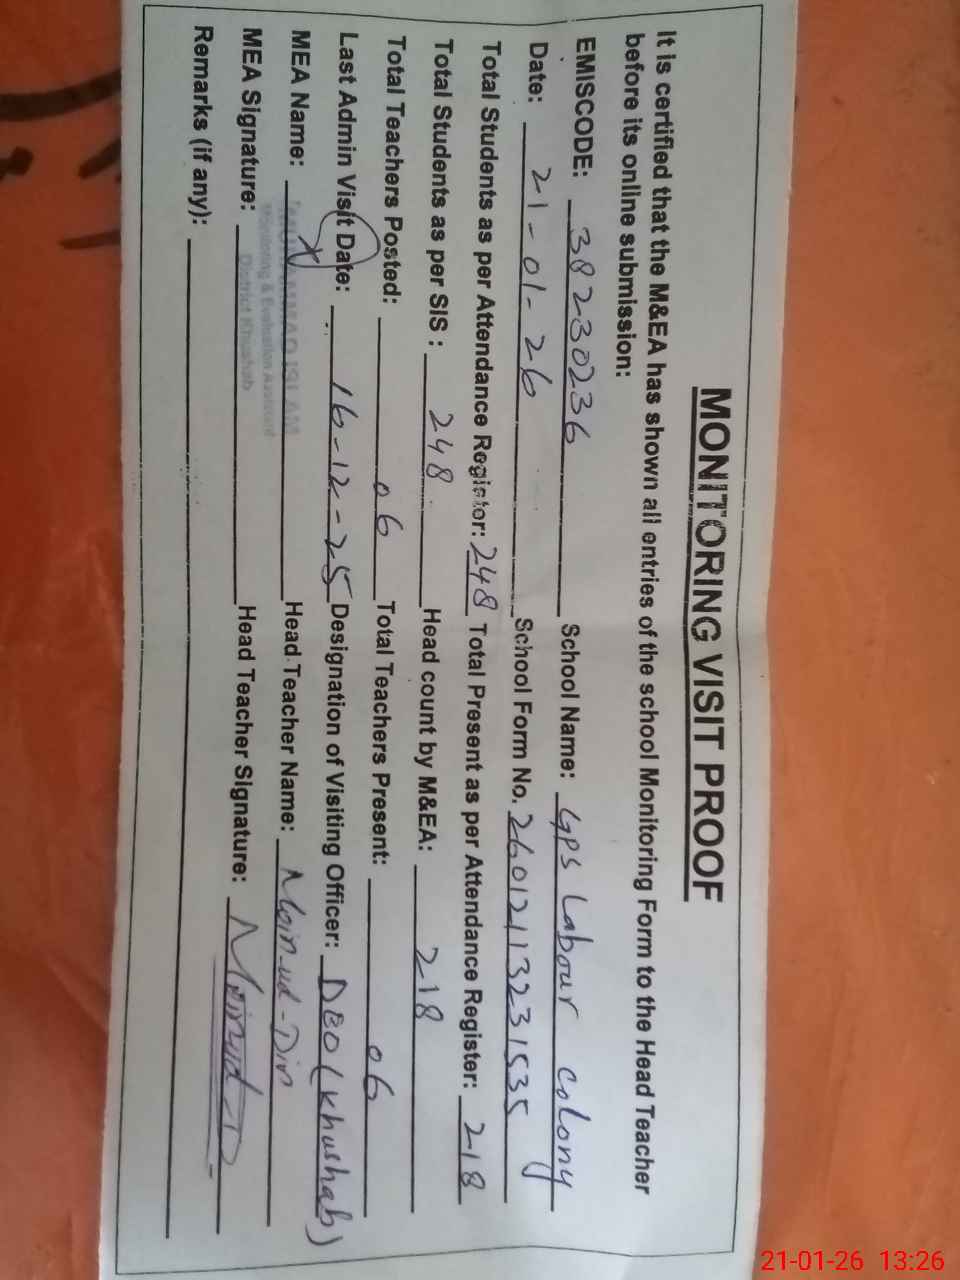 MONITORING VISIT PROOF
It is certified that the M&EA has shown all entries of the school Monitoring Form to the Head Teacher
before its online submission:
EMISCODE: 38230236 School Name: GPS Labour colony
Date: 21-01-26 School Form No. 2601211323 1535
Total Students as per Attendance Register: 248 Total Present as per Attendance Register: 218
Total Students as per SIS : 248 Head count by M&EA: 218
Total Teachers Posted: 06 Total Teachers Present: 06
Last Admin Visit Date: 16-12-25 Designation of Visiting Officer: DEO (Khushab)
MEA Name: Head Teacher Name: Moin ud-Din
Monitoring & Evaluation Assistant
District Khushab
MEA Signature: Head Teacher Signature: Moinud-D
Remarks (if any):
21-01-26 13:26